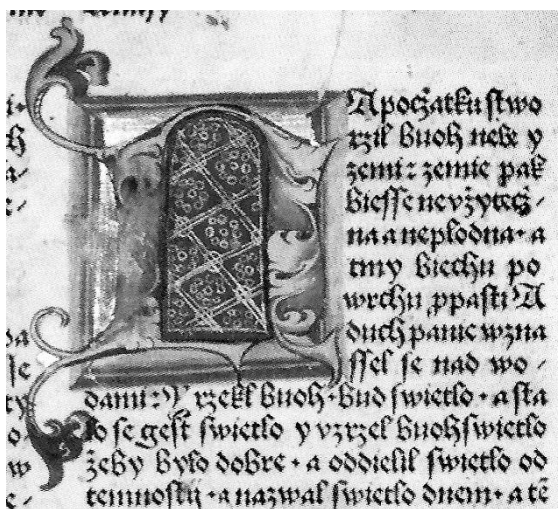 Apocżatku ſtwo
rzil buoh nebe y
zemi : zemie pak
bieſſe nevżytecż-
na a neplodna · a
tmy biechu po
wrchu ꝓpaſti A
duch panie wzna
ſſel ſe nad wo-
dami : Y rzekl buoh · bud ſwietlo · a ſta
lo ſe geſt ſwietlo y vzrzel buoh ſwietlo
żeby bylo dobre · a oddielil ſwietlo od
temnoſtij · a nazwal ſwietlo dnem · a tē